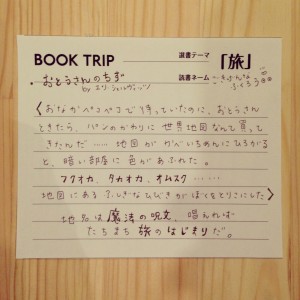 BOOK TRIP
選書テーマ
「旅」
おとうさんのちず
by ユリ・シュルヴィッツ
読書ネーム
ふくろう
〈おなかペコペコで待っていたのに、おとうさん
ときたら、パンのかわりに世界地図なんて買って
きたんだ……地図がかべいちめんにひろがる
と、暗い部屋に色があふれた。
フクオカ、タカオカ、オムスク……
地図にあるふしぎなひびきがぼくをとりこにした〉
地名は魔法の呪文、唱えれば
たちまち旅のはじまりだ。